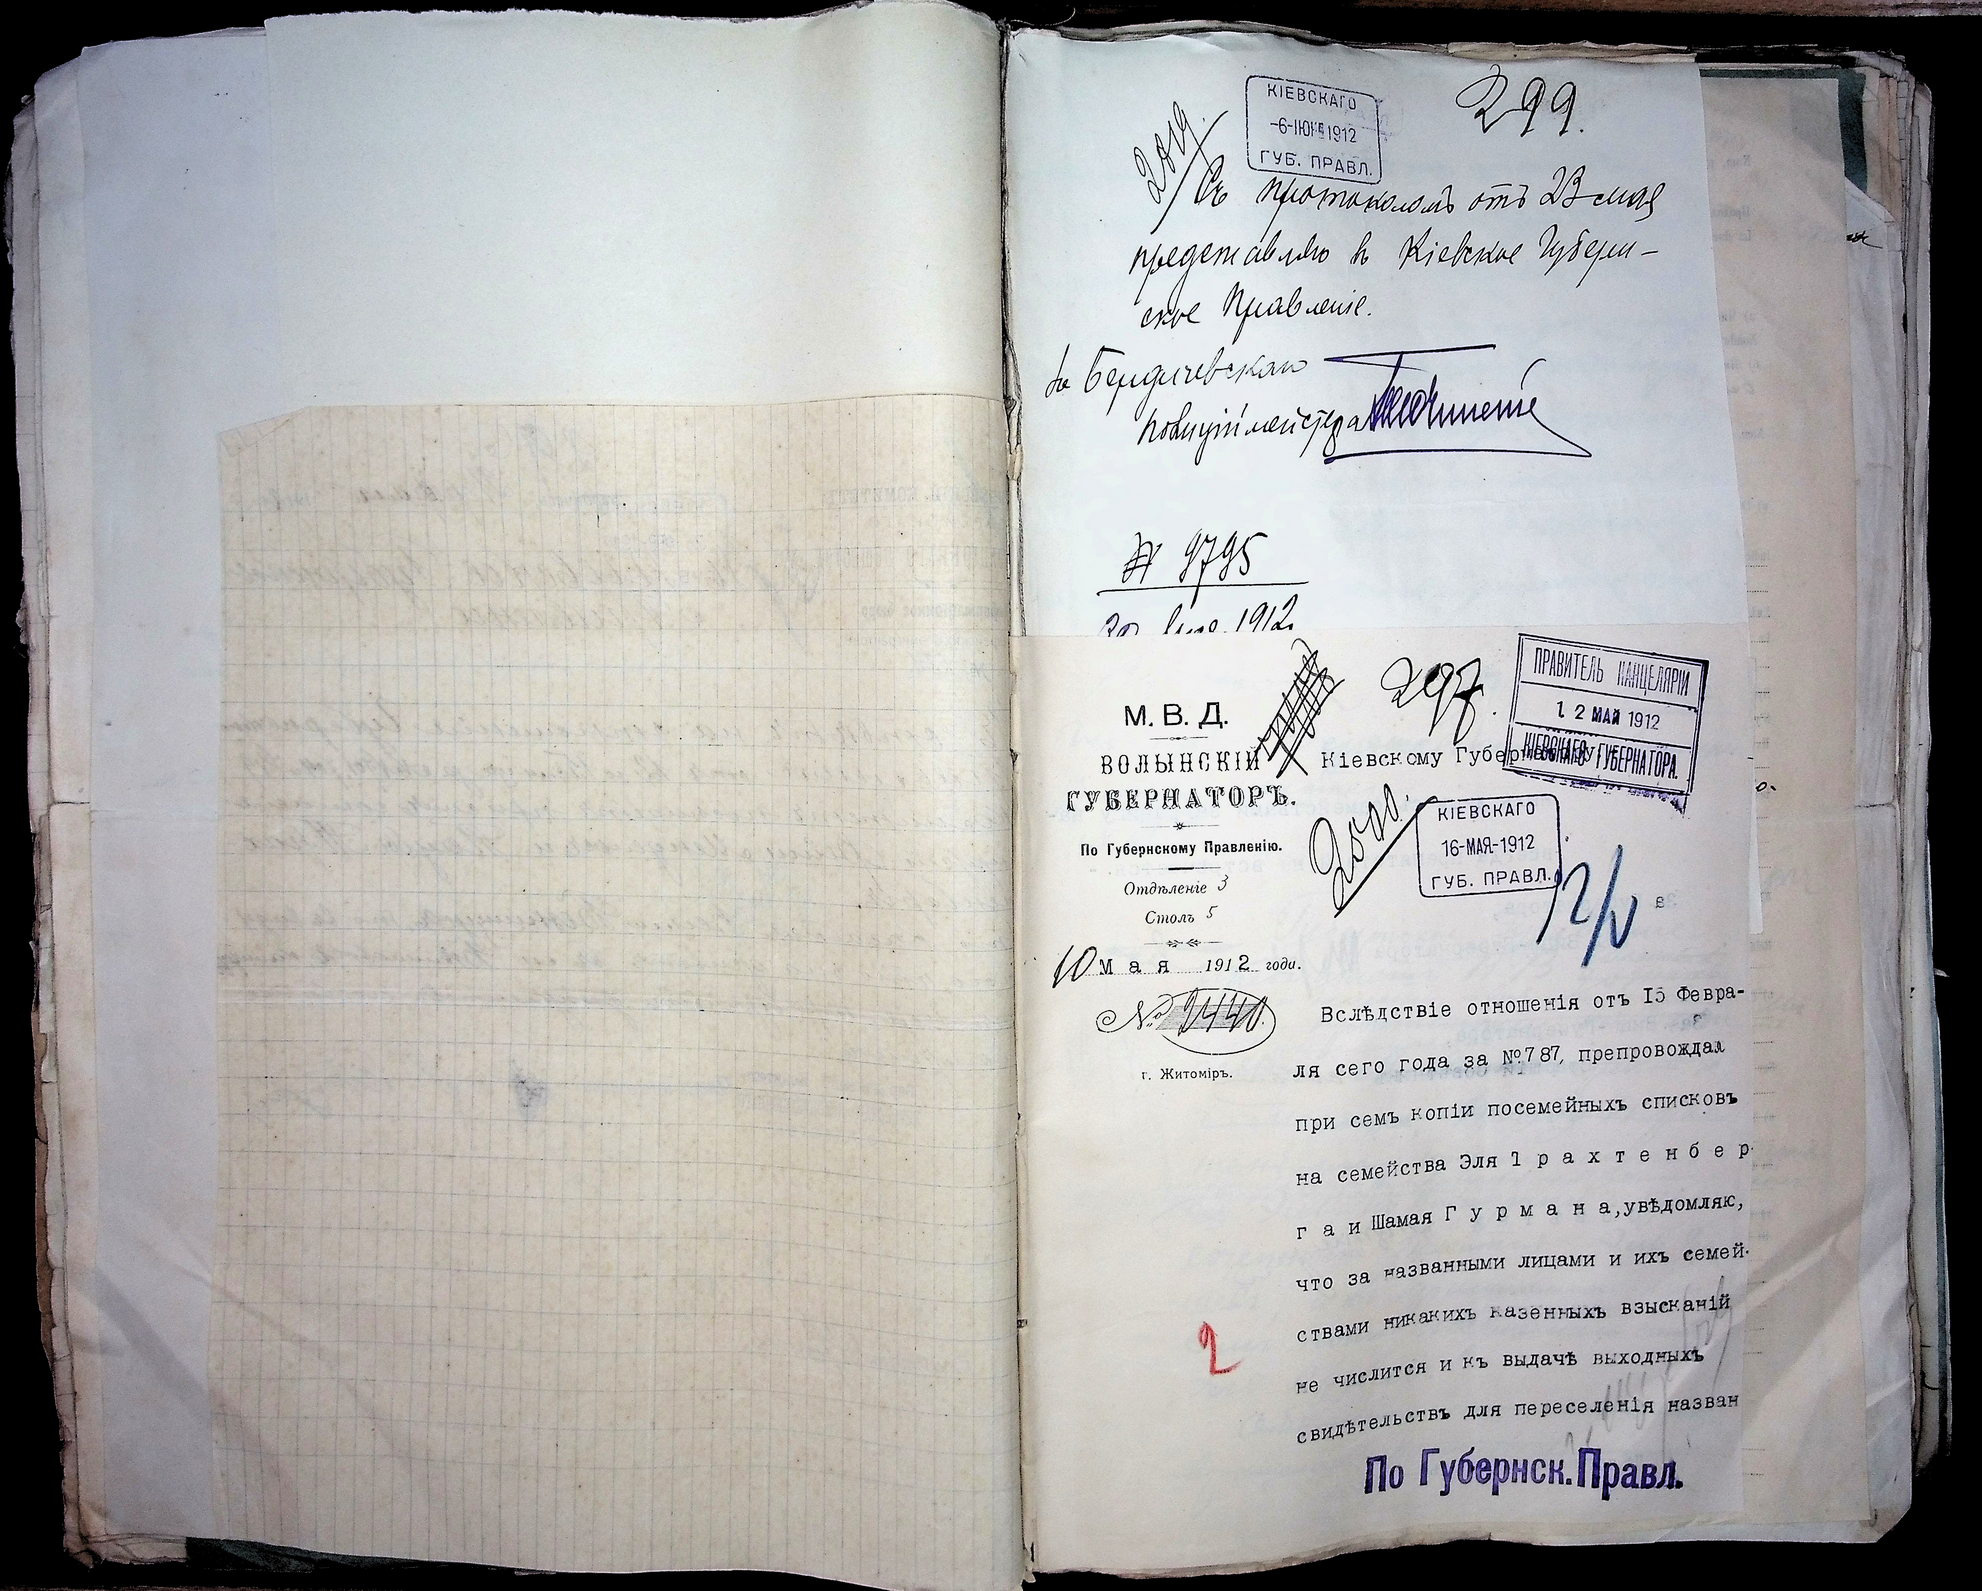 299.
КІЕВСКАГО
-6-ІЮН 1912
ГУБ. ПРАВЛ.
2019.
Съ протоколомъ отъ 23 мая
представляю въ Кіевское Губерн-
ское Правленіе.
Бердичевскаго
полиціймейстера
№ 9795
1912.
297.
ПРАВИТЕЛЬ КАНЦЕЛЯРІИ
1 2 МАЙ 1912
КІЕВСКАГО ГУБЕРНАТОРА.
М. В. Д.
ВОЛЫНСКІЙ
ГУБЕРНАТОРЪ.
По Губернскому Правленію.
Отдѣленіе 3
Столъ 5
10 мая 1912 года.
№ 2440.
г. Житоміръ.
Кіевскому Губернатору.
КІЕВСКАГО
16-МАЯ-1912
ГУБ. ПРАВЛ.
Вслѣдствіе отношенія отъ 15 Февра-
ля сего года за №787, препровождая
при семъ копіи посемейныхъ списковъ
на семейства Эля Трахтенбер-
га и Шамая Гурмана, увѣдомляю,
что за названными лицами и ихъ семей-
ствами никакихъ казенныхъ взысканій
не числится и къ выдачѣ выходныхъ
свидѣтельствъ для переселенія назван
2
По Губернск. Правл.